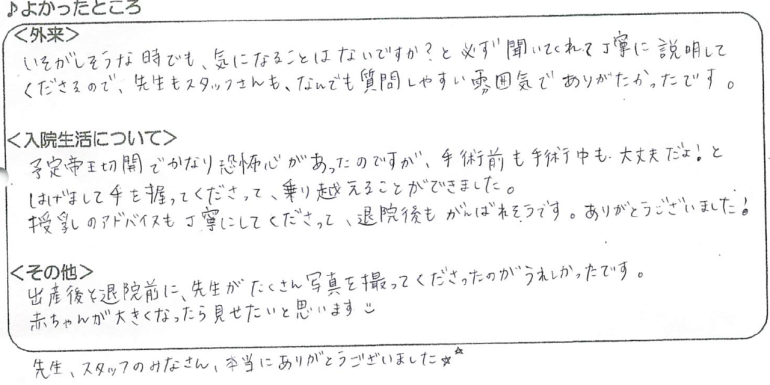 ♪よかったところ
<外来>
いそがしそうな時でも、気になることはないですか?と必ず聞いてくれて丁寧に説明して
くださるので、先生もスタッフさんも、なんでも質問しやすい雰囲気でありがたかったです。
<入院生活について>
予定帝王切開でかなり恐怖心があったのですが、手術前も手術中も、大丈夫だよ!と
はげまして手を握ってくださって、乗り越えることができました。
授乳のアドバイスも丁寧にしてくださって、退院後もがんばれそうです。ありがとうございました!
<その他>
出産後と退院前に、先生がたくさん写真を撮ってくださったのがうれしかったです。
赤ちゃんが大きくなったら見せたいと思います
先生、スタッフのみなさん、本当にありがとうございました☆☆